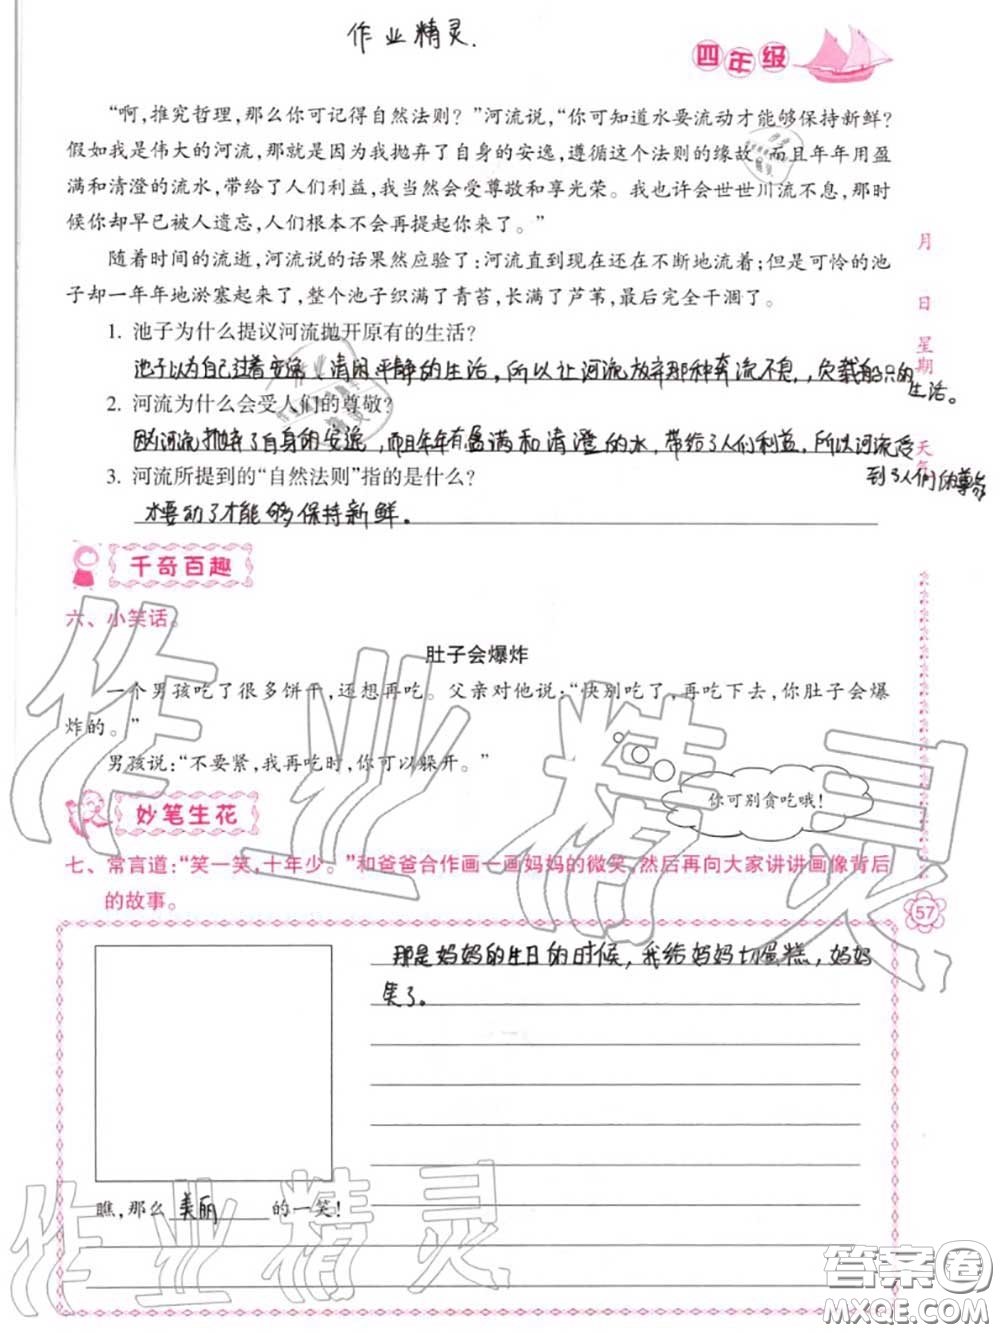 作业精灵.
四年级
“啊,推究哲理,那么你可记得自然法则？”河流说,“你可知道水要流动才能够保持新鲜?
假如我是伟大的河流,那就是因为我抛弃了自身的安逸,遵循这个法则的缘故。而且年年用盈
满和清澄的流水,带给了人们利益,我当然会受尊敬和享光荣。我也许会世世川流不息,那时
候你却早已被人遗忘,人们根本不会再提起你来了。”
随着时间的流逝,河流说的话果然应验了:河流直到现在还在不断地流着;但是可怜的池
子却一年年地淤塞起来了,整个池子织满了青苔,长满了芦苇,最后完全干涸了。
月
日
星期
天气
1. 池子为什么提议河流抛开原有的生活?
池子以为自己过着安逸、清闲平静的生活,所以让河流放弃那种奔流不息,,负载船只的
生活。
2. 河流为什么会受人们的尊敬?
因为河流抛弃了自身的安逸,而且年年有盈满和清澄的水,带给了人们利益,所以河流受
到了人们的尊敬
3. 河流所提到的“自然法则”指的是什么?
水要动了才能够保持新鲜。
千奇百趣
六、小笑话。
肚子会爆炸
一个男孩吃了很多饼干,还想再吃。父亲对他说:“快别吃了,再吃下去,你肚子会爆
炸的。”
男孩说:“不要紧,我再吃时,你可以躲开。”
你可别贪吃哦!
妙笔生花
七、常言道:“笑一笑,十年少。”和爸爸合作画一画妈妈的微笑,然后再向大家讲讲画像背后
的故事。
57
那是妈妈的生日的时候,我给妈妈切蛋糕,妈妈
笑了。
瞧,那么美丽的一笑!
作业精灵
作业精灵
答案圈
MXQE.COM